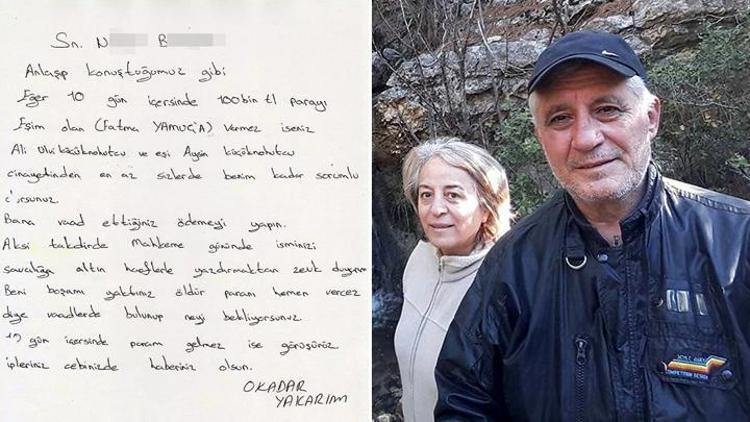 Sn. N B
Anlaşıp konuştuğumuz gibi
Eğer 10 gün içersinde 100 bin tl parayı
Eşim olan (Fatma YAMUÇ'A) vermez iseniz
Ali Ulvi küçüknohutcu ve eşi Aysin küçüknohutcu
cinayetinden en az sizlerde benim kadar sorumlu
olursunuz
Bana vaad ettiğiniz ödemeyi yapın.
Aksi takdirde Mahkeme gününde isminizi
savcılığa altın harflerle yazdırmaktan zevk duyarım
Beni boşamı yaktınız öldür paranı hemen vercez
diye vaadlerde bulunup neyi bekliyorsunuz.
10 gün içersinde param gelmez ise görüşürüz
ipleriniz cebinizde haberiniz olsun.
OKADAR
YAKARIM
COMPETITION DESIGN